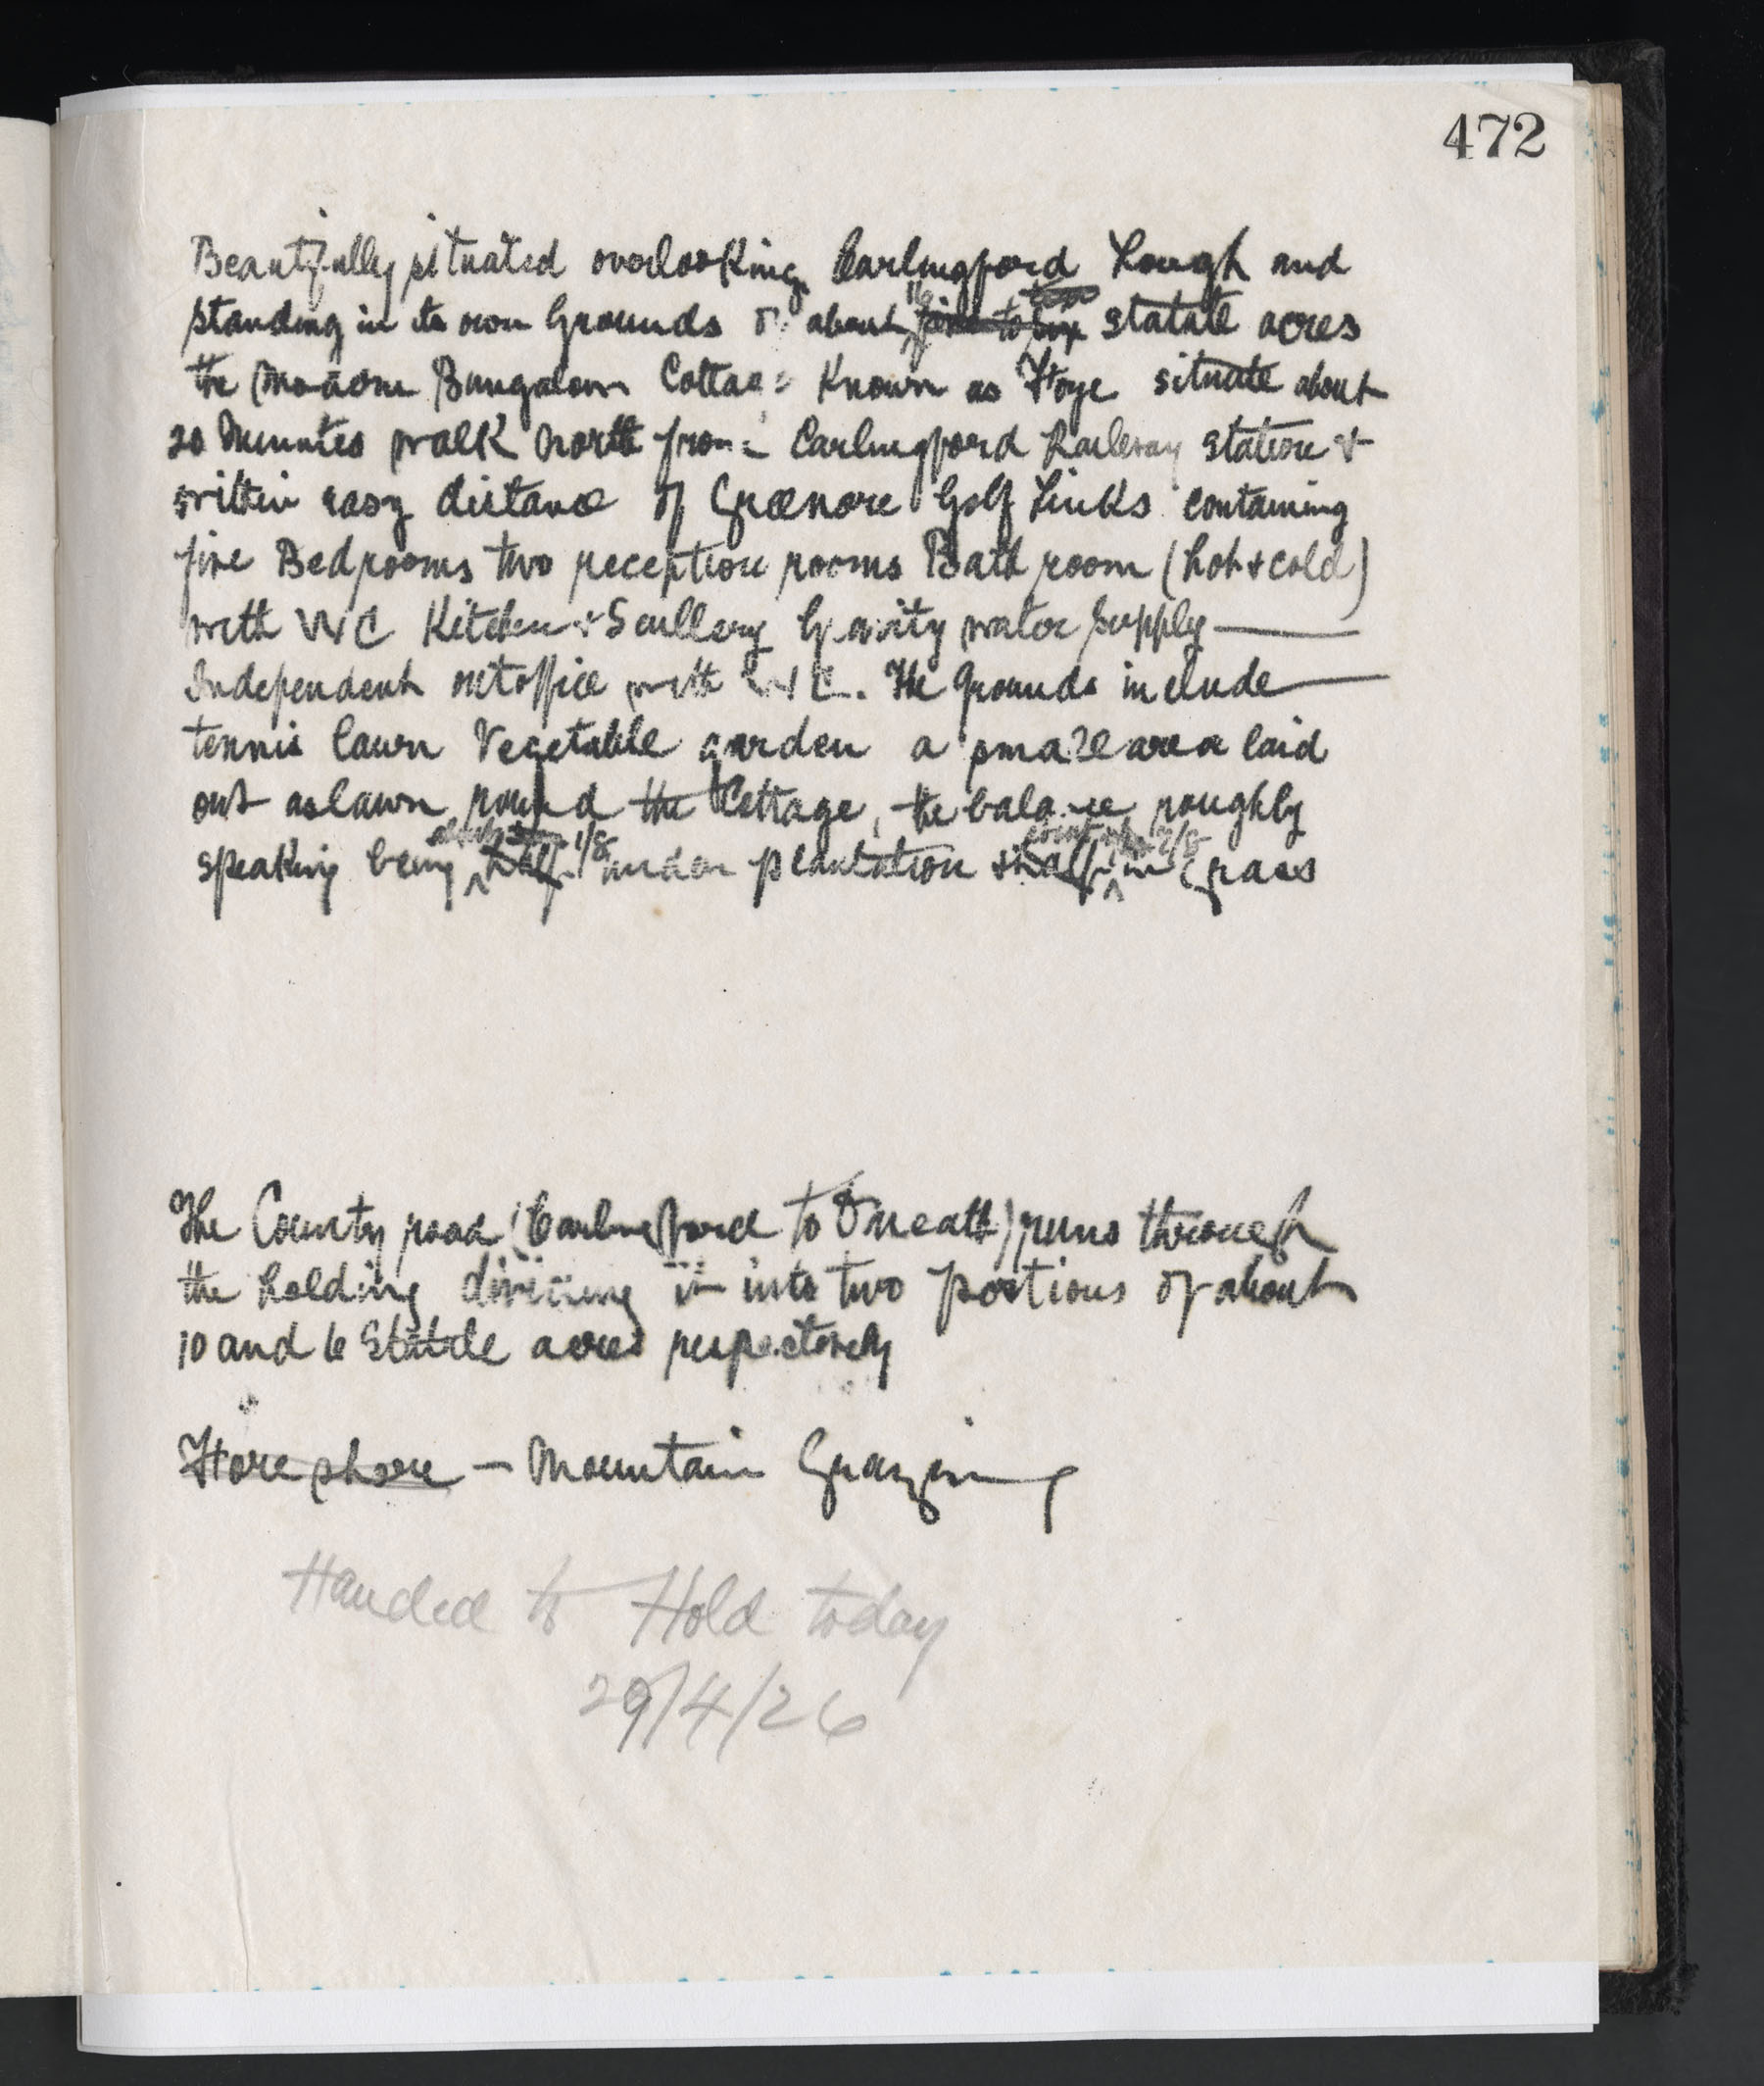 472
Beautifully situated overlooking Carlingford Lough and
standing in its own Grounds of about 16 statute acres
the modern Bungalow Cottage known as Foye situate about
20 Minutes walk North from Carlingford Railway Station &
within easy distance of Greenore Golf Links containing
five Bedrooms two reception rooms Bath room (hot & cold)
with WC Kitchen & Scullery Gravity water supply
Independent outoffice with WC. The Grounds include
tennis lawn Vegetable garden a small area laid
out as lawn round the Cottage, the balance roughly
speaking being about 1/8 under plantation & 7/8 in Grass
The County road (Carlingford to Omeath) runs through
the holding dividing it into two portions of about
10 and 6 Statute acres respectively
Fore shore – Mountain Grazing
Handed to Hold today
29/4/26